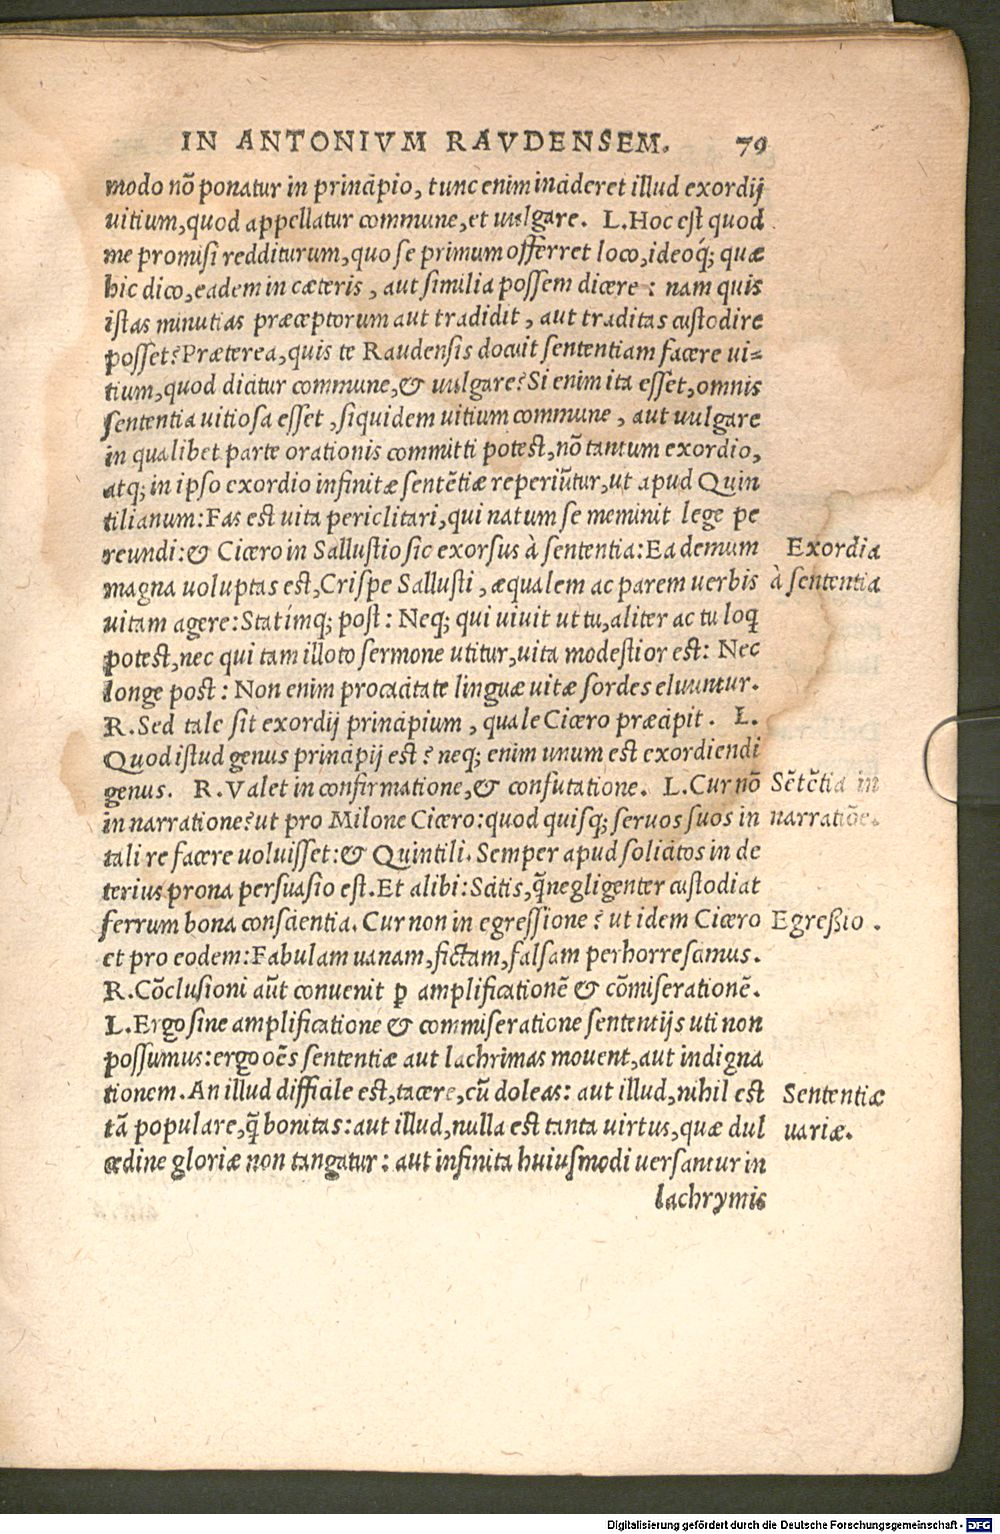 IN ANTONIVM RAVDENSEM. 79
modo nō ponatur in principio, tunc enim incideret illud exordij
uitium, quod appellatur commune, et uulgare. L. Hoc est quod
me promisi redditurum, quo se primum offerret loco, ideoq́; quæ
hic dico, eadem in cæteris, aut similia possem dicere: nam quis
istas minutias præceptorum aut tradidit, aut traditas custodire
posset? Præterea, quis te Raudensis docuit sententiam facere ui=
tium, quod dicitur commune, & uulgare? Si enim ita esset, omnis
sententia uitiosa esset, siquidem uitium commune, aut uulgare
in qualibet parte orationis committi potest, nō tantum exordio,
atq; in ipso exordio infinitæ sentētiæ reperiūtur, ut apud Quin
tilianum: Fas est uita periclitari, qui natum se meminit lege pe
reundi: & Cicero in Sallustio sic exorsus à sententia: Ea demum
Exordia
magna uoluptas est, Crispe Sallusti, æqualem ac parem uerbis
à sententia
uitam agere: Statimq; post: Neq; qui uiuit ut tu, aliter ac tu loq
potest, nec qui tam illoto sermone utitur, uita modestior est: Nec
longe post: Non enim procacitate linguæ uitæ sordes eluuntur.
R. Sed tale sit exordij principium, quale Cicero præcipit. L.
Quod istud genus principij est? neq; enim unum est exordiendi
genus. R. Valet in confirmatione, & confutatione. L. Cur nō
Sētētia in
in narratione? ut pro Milone Cicero: quod quisq; seruos suos in
narratiōe.
tali re facere uoluisset: & Quintili. Semper apud solicitos in de
terius prona persuasio est. Et alibi: Scitis, q̄ negligenter custodiat
ferrum bona conscientia. Cur non in egressione? ut idem Cicero
Egreßio.
et pro eodem: Fabulam uanam, fictam, falsam perhorrescimus.
R. Cōclusioni aūt conuenit ꝑ amplificationē & cōmiserationē.
L. Ergo sine amplificatione & commiseratione sententijs uti non
possumus: ergo oēs sententiæ aut lachrimas mouent, aut indigna
tionem. An illud difficile est, tacere, cū doleas: aut illud, nihil est
Sententiæ
tā populare, q̄ bonitas: aut illud, nulla est tanta uirtus, quæ dul
uariæ.
cedine gloriæ non tangatur: aut infinita huiusmodi uersantur in
lachrymis
Digitalisierung gefördert durch die Deutsche Forschungsgemeinschaft - DFG